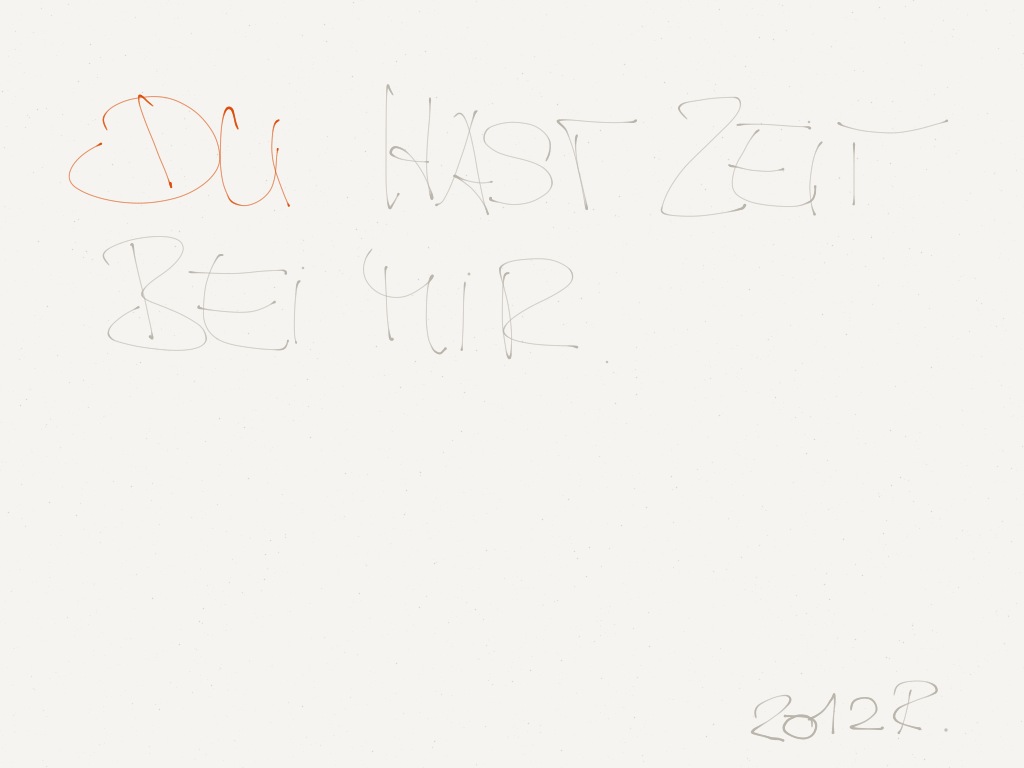 DU HAST ZEIT
BEI MIR.
2012 R.